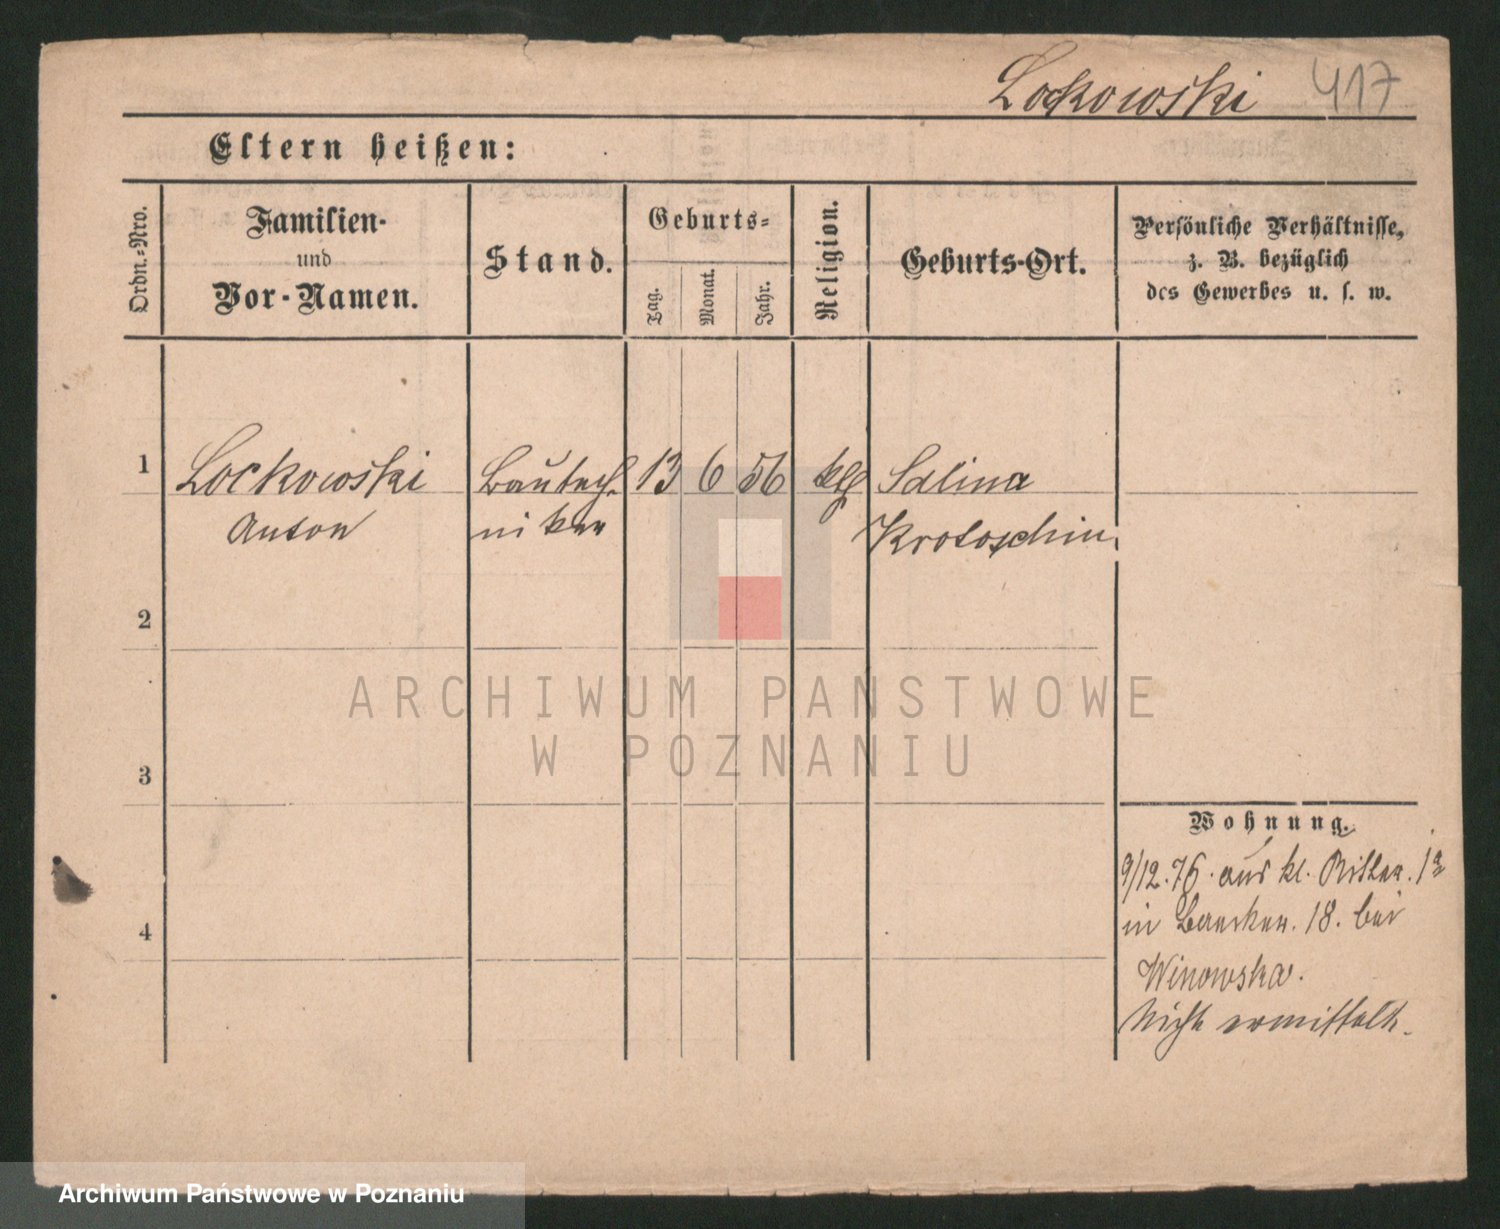 Lockowski 417
Eltern heißen:
Ordn.-Nro.
Familien-
und
Vor-Namen.
Stand.
Geburts-
Tag.
Monat.
Jahr.
Religion.
Geburts-Ort.
Persönliche Verhältnisse,
z. B. bezüglich
des Gewerbes u. s. w.
1 Lockowski Bautech- 13 6 56 kth Salina
Anton niker Krotoschin
2
3
4
Wohnung.
9/12.76. aus kl. Ritter. 12
in Baecker. 18. bei
Winowska.
Nicht ermittelt.
ARCHIWUM PAŃSTWOWE
W POZNANIU
Archiwum Państwowe w Poznaniu